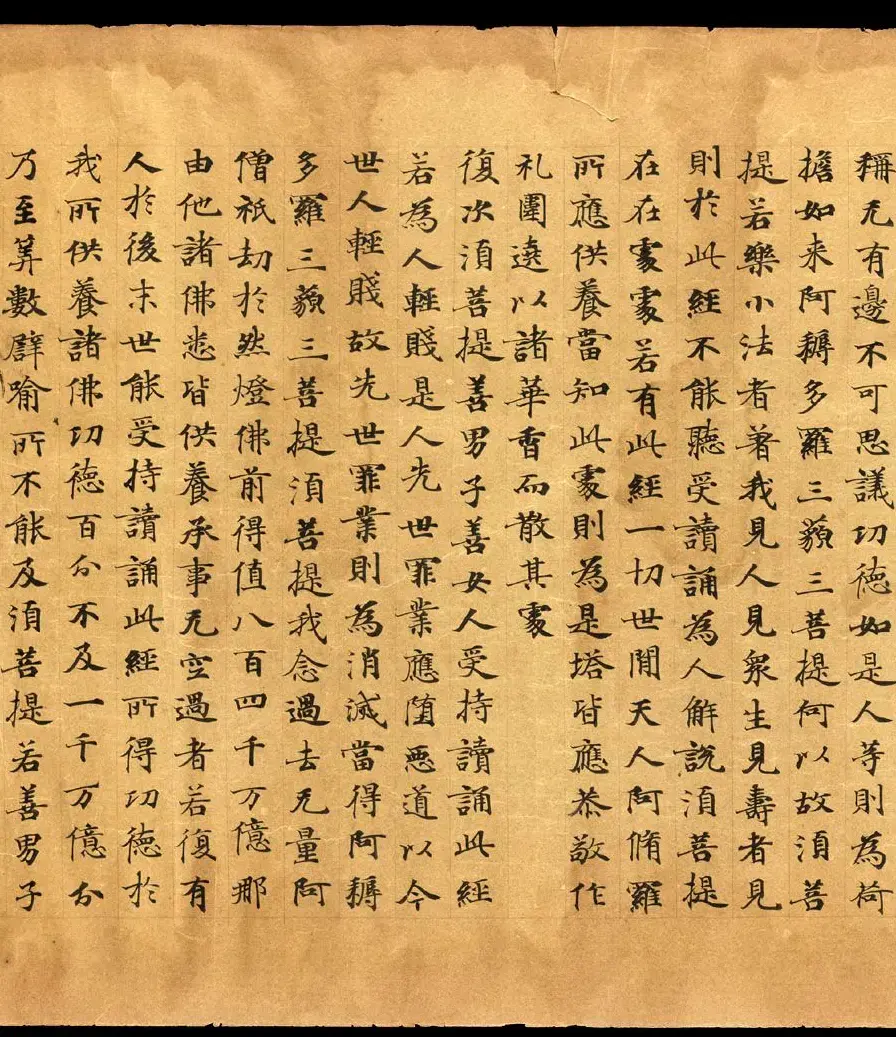 稱无有邊不可思議功德如是人等則為荷
擔如来阿耨多羅三藐三菩提何以故須菩
提若樂小法者著我見人見衆生見壽者見
則於此經不能聽受讀誦為人解說須菩提
在在處處若有此經一切世間天人阿脩羅
所應供養當知此處則為是塔皆應恭敬作
礼圍遶以諸華香而散其處
復次須菩提善男子善女人受持讀誦此經
若為人輕賤是人先世罪業應堕惡道以今
世人輕賤故先世罪業則為消滅當得阿耨
多羅三藐三菩提須菩提我念過去无量阿
僧祇劫於然燈佛前得值八百四千万億那
由他諸佛悉皆供養承事无空過者若復有
人於後末世能受持讀誦此經所得功德於
我所供養諸佛功德百分不及一千万億分
乃至筭數譬喻所不能及須菩提若善男子